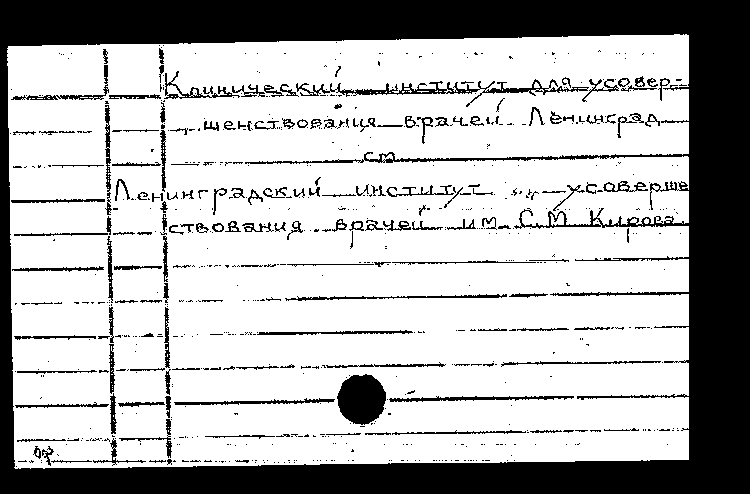 Клинический институт для усовер-
шенствования врачей Ленинград
см
Ленинградский институт „ усоверше
ствования врачей им. С.М Кирова